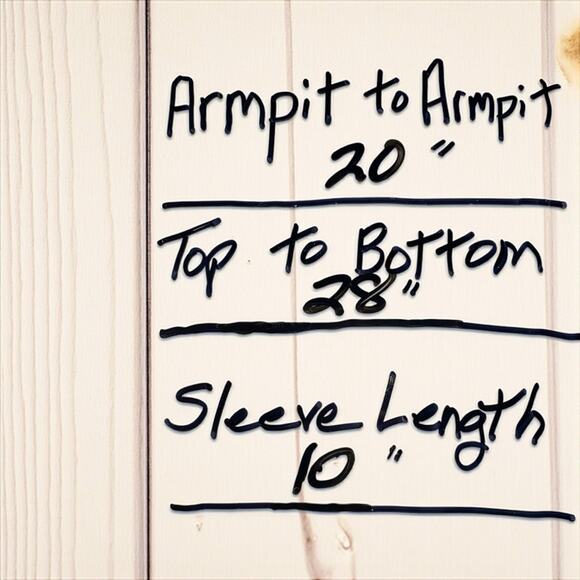 Armpit to Armpit
20"
Top to Bottom
28"
Sleeve Length
10"